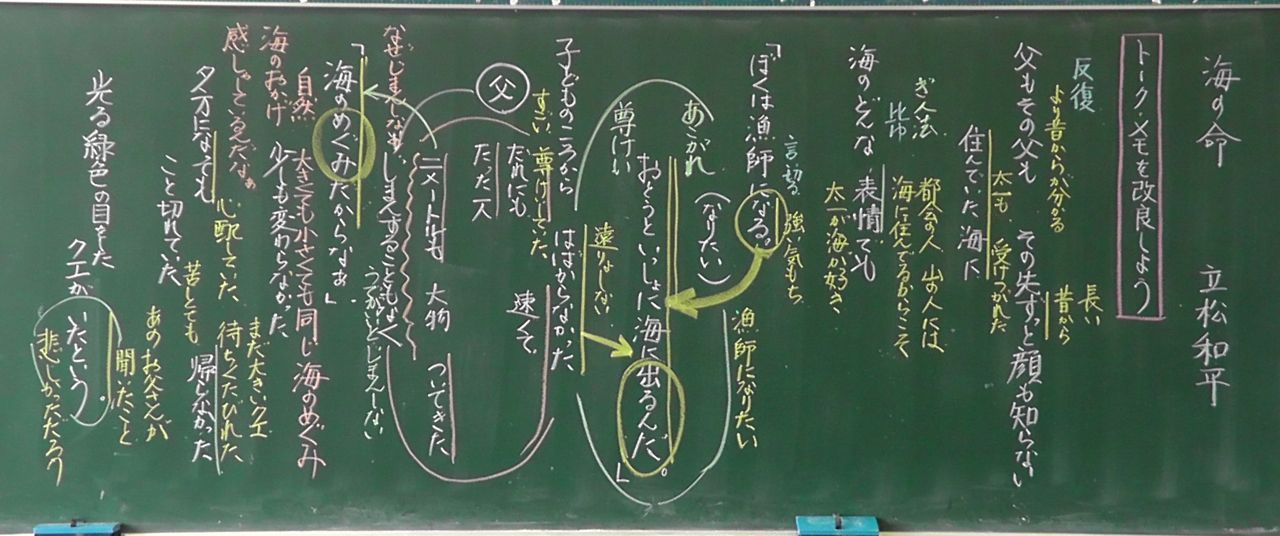 海の命　立松和平
トーク・メモを改良しよう
長い
反復　昔から
より昔からが分かる
父もその父も　その先ずっと顔も知らない
太一も　受けつがれた
住んでいた海に
都会の人　山の人には
海に住んでるからこそ
ぎ人法
海のどんな　表情でも
太一が海が好き
言い切る　強い気もち
「ぼくは漁師になる。
（なりたい）
漁師になりたい
あこがれ
おとうといっしょに海に出るんだ。」
尊けい
遠りょしない
子どものころから　はばからなかった
すごい　尊けいしていた
父　だれにも　速くて
たった一人
二メートルも　大物　ついてきた
なぜじまんしなぁ
じまんすることもなく
うかれない、じまんしない
「海のめぐみだからなぁ」
自然　大きくても小さくても同じ海のめぐみ
海のおかげ　少しも変わらなかった
感しゃしてるんだなぁ
心配していた　待ちくたびれた
まだ大きいクエ
夕方になっても　帰らなかった
苦しとても
こと切れていた
あのお父さんが
聞いたこと
光る緑色の目をした
クエが　いたという。
悲しかっただろう